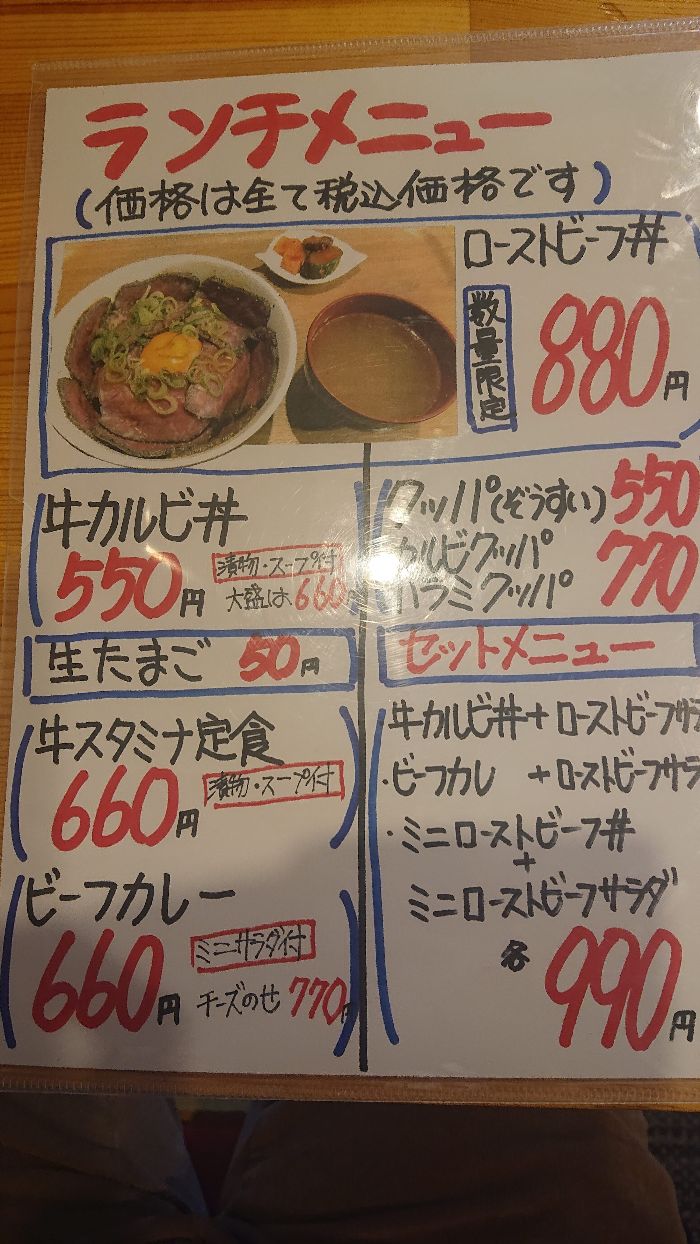 ランチメニュー
(価格は全て税込価格です)
ローストビーフ丼
数量限定
880円
牛カルビ丼
550円
漬物・スープ付
大盛は660
生たまご 50円
牛スタミナ定食
660円
漬物・スープ付
ビーフカレー
660円
ミニサラダ付
チーズのせ 770円
クッパ(ぞうすい) 550
カルビクッパ
ハラミクッパ
770
セットメニュー
牛カルビ丼+ローストビーフサラ
・ビーフカレ +ローストビーフサラ
・ミニローストビーフ丼
+
ミニローストビーフサラダ
各 990円